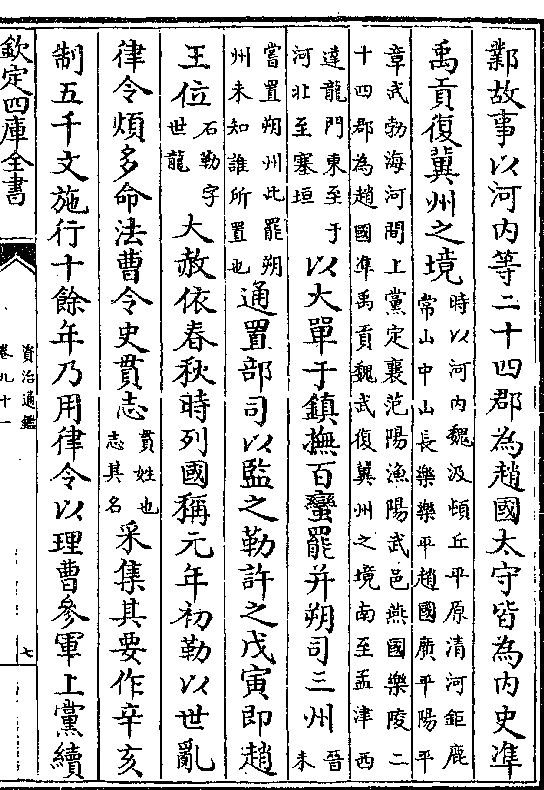 鄴故事以河内等二十四郡為趙國太守皆為内史凖
禹貢復冀州之境
時以河内魏汲頓丘平原清河鉅鹿
常山中山長樂樂平趙國廣平陽平
章武勃海河間上黨定襄范陽漁陽武邑燕國樂陵二
十四郡為趙國凖禹貢魏武復冀州之境南至孟津西
達龍門東至于
河北至塞垣
以大單于鎮撫百蠻罷并朔司三州
晉
未
嘗置朔州此罷朔
州未知誰所置也
通置部司以監之勒許之戊寅即趙
王位
石勒字
世龍
大赦依春秋時列國稱元年初勒以世亂
律令煩多命法曹令史貫志
貫姓也
志其名
采集其要作辛亥
制五千文施行十餘年乃用律令以理曹參軍上黨續
欽定四庫全書
資治通鑑
卷九十一
七